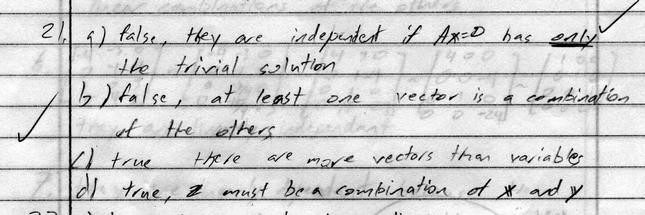 21. a) false, they are independent if Ax=0 has only
the trivial solution
b) false, at least one vector is a combination
of the others
c) true there are more vectors than variables
d) true, z must be a combination of x and y